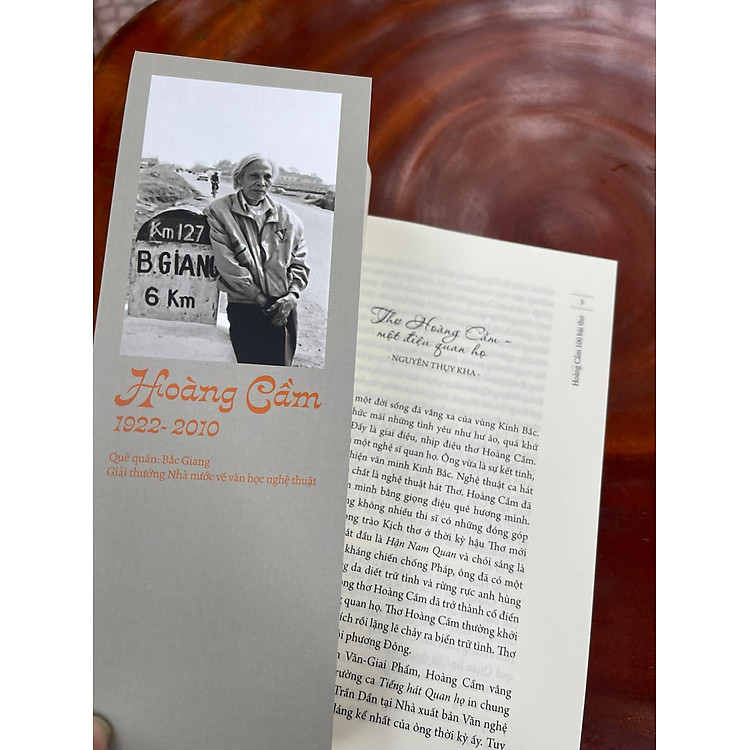 Km 127
B.GIANG
6 Km
Hoàng Cầm
1922-2010
Quê quán: Bắc Giang
Giải thưởng Nhà nước về văn học nghệ thuật
5
Hoàng Cầm 100 bài thơ
Thơ Hoàng Cầm -
một điệu quan họ
- NGUYỄN THỤY KHA -
một đời sống đã vắng xa của vùng Kinh Bắc.
thức mãi những tình yêu như hư ảo, quá khứ
Đấy là giai điệu, nhịp điệu thơ Hoàng Cầm.
một nghệ sĩ quan họ. Ông vừa là sự kết tinh,
hiện văn minh Kinh Bắc. Nghệ thuật ca hát
chất là nghệ thuật hát Thơ. Hoàng Cầm đã
minh bằng giọng điệu quê hương mình.
không nhiều thi sĩ có những đóng góp
trào Kịch thơ ở thời kỳ hậu Thơ mới
đầu là Hận Nam Quan và chói sáng là
kháng chiến chống Pháp, ông đã có một
da diết trữ tình và rừng rực anh hùng
thơ Hoàng Cầm đã trở thành cổ điển
quan họ. Thơ Hoàng Cầm thường khởi
rồi lặng lẽ chảy ra biển trữ tình. Thơ
phương Đông.
Văn-Giai Phẩm, Hoàng Cầm vắng
trường ca Tiếng hát Quan họ in chung
Trần Dần tại Nhà xuất bản Văn nghệ
đáng kể nhất của ông thời kỳ ấy. Tuy